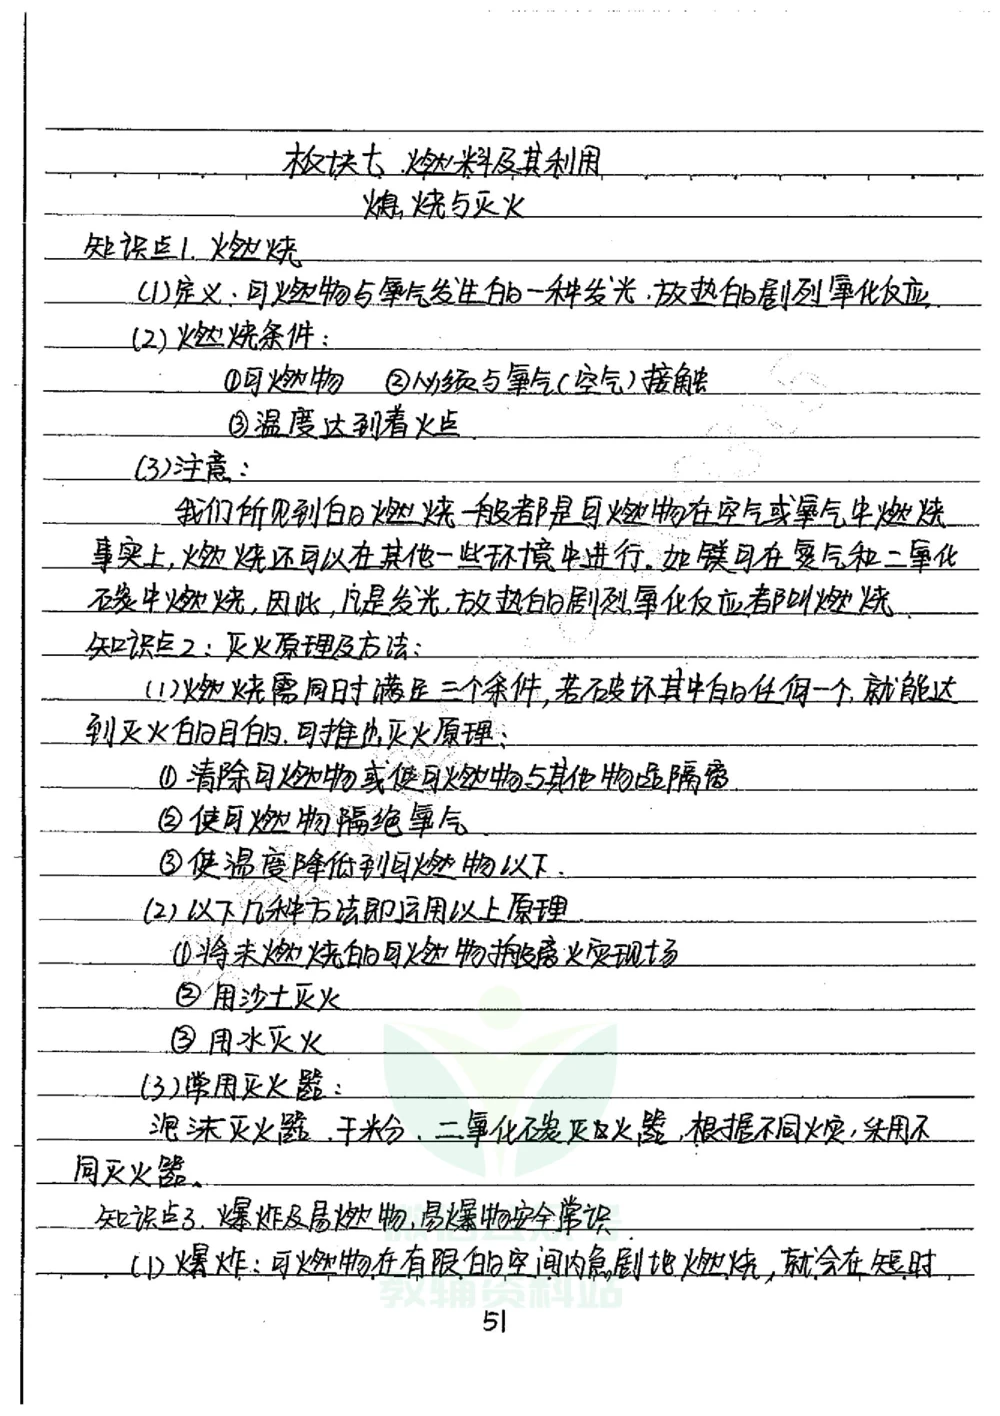 板块七、燃料及其利用
燃烧与灭火
知识点1. 燃烧
(1)定义:可燃物与氧气发生的一种发光.放热的剧烈氧化反应.
(2)燃烧条件:
①可燃物 ②必须与氧气(空气)接触
③温度达到着火点
(3)注意:
我们所见到的燃烧一般都是可燃物在空气或氧气中燃烧
事实上,燃烧还可以在其他一些环境中进行.如镁可在氮气和二氧化
碳中燃烧,因此,凡是发光.放热的剧烈氧化反应都叫燃烧
知识点2:灭火原理及方法:
(1)燃烧需同时满足三个条件,若破坏其中的任何一个.就能达
到灭火的目的.可推出灭火原理:
①清除可燃物或使可燃物与其他物品隔离
②使可燃物隔绝氧气
③使温度降低到可燃物以下.
(2)以下几种方法即运用以上原理
①将未燃烧的可燃物搬离火灾现场
②用沙土灭火
③用水灭火
(3)常用灭火器:
泡沫灭火器.干粉.二氧化碳灭火器,根据不同火灾,采用不
同灭火器。
知识点3.爆炸及易燃物,易爆物安全常识
(1)爆炸:可燃物在有限的空间内急剧地燃烧,就会在短时
教辅资料站
51